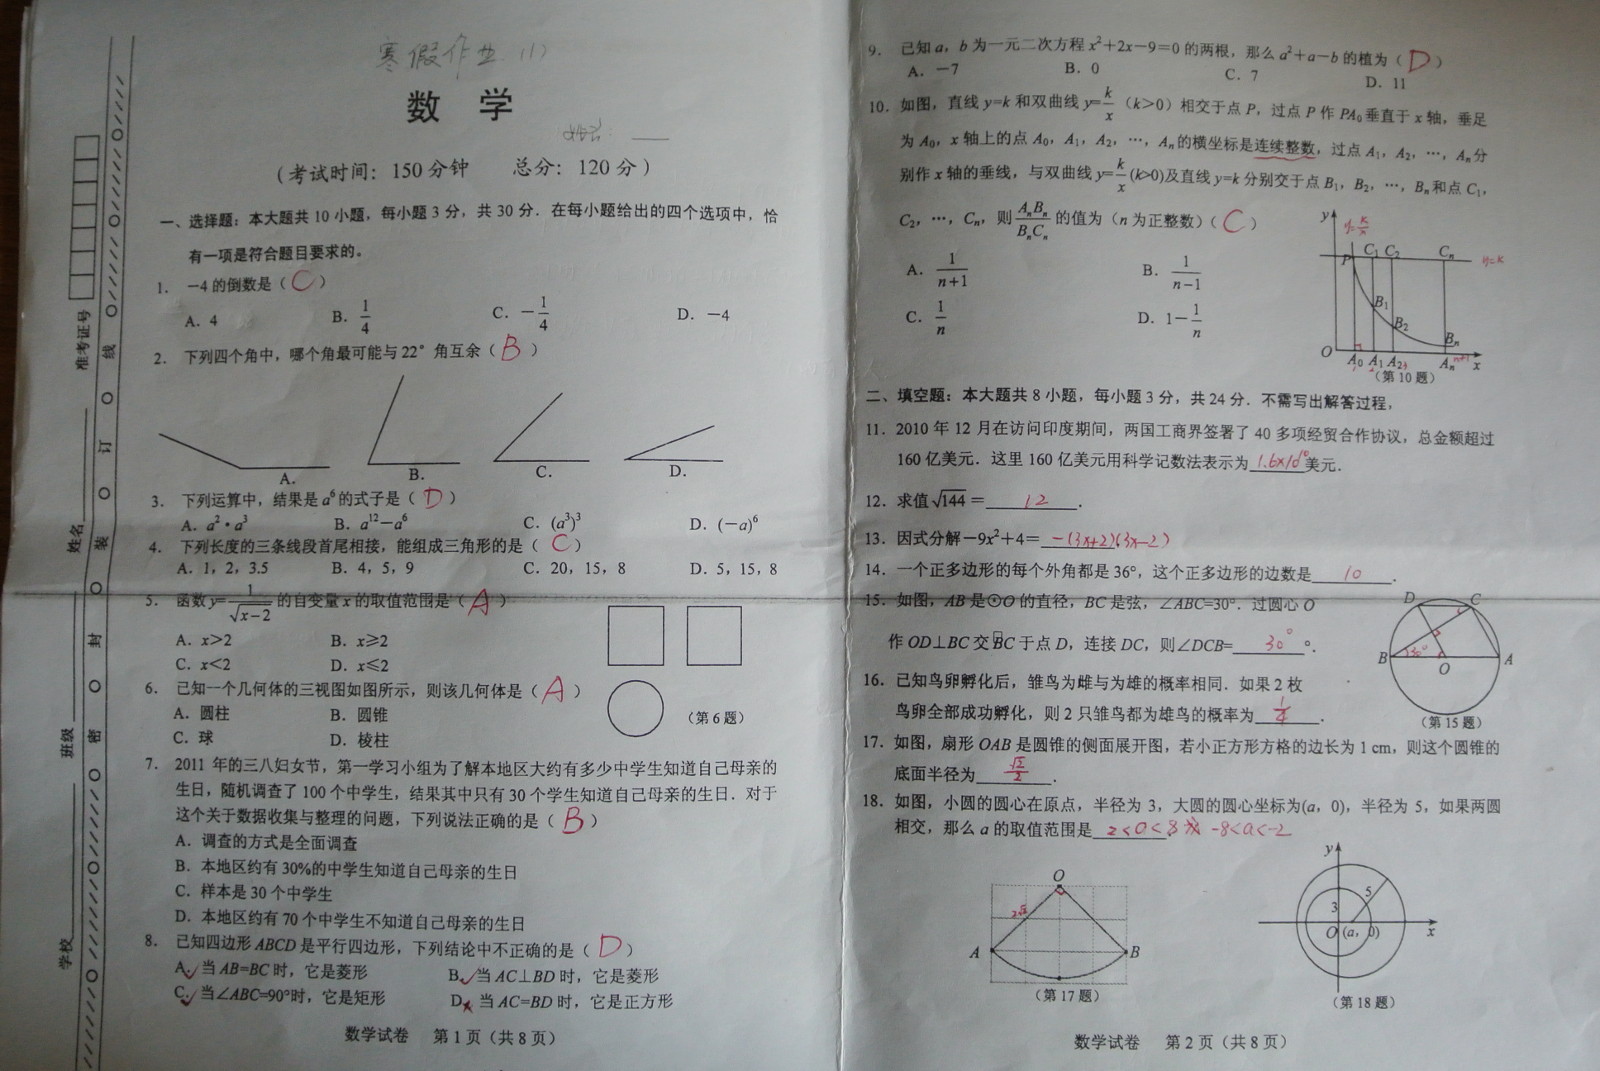 寒假作业 (1)
数 学
姓名:
(考试时间:150分钟 总分:120分)
一、选择题:本大题共10小题,每小题3分,共30分.在每小题给出的四个选项中,恰
有一项是符合题目要求的。
1. -4的倒数是( C )
A. 4 B. 1/4 C. -1/4 D. -4
2. 下列四个角中,哪个角最可能与22°角互余( B )
A. B. C. D.
3. 下列运算中,结果是a⁶的式子是( D )
A. a²·a³ B. a¹²-a⁶ C. (a³)³ D. (-a)⁶
4. 下列长度的三条线段首尾相接,能组成三角形的是( C )
A. 1,2,3.5 B. 4,5,9 C. 20,15,8 D. 5,15,8
5. 函数y=1/√(x-2)的自变量x的取值范围是( A )
A. x>2 B. x≥2
C. x<2 D. x≤2
6. 已知一个几何体的三视图如图所示,则该几何体是( A )
A. 圆柱 B. 圆锥
C. 球 D. 棱柱
(第6题)
7. 2011年的三八妇女节,第一学习小组为了解本地区大约有多少中学生知道自己母亲的
生日,随机调查了100个中学生,结果其中只有30个学生知道自己母亲的生日.对于
这个关于数据收集与整理的问题,下列说法正确的是( B )
A. 调查的方式是全面调查
B. 本地区约有30%的中学生知道自己母亲的生日
C. 样本是30个中学生
D. 本地区约有70个中学生不知道自己母亲的生日
8. 已知四边形ABCD是平行四边形,下列结论中不正确的是( D )
A. 当AB=BC时,它是菱形 B. 当AC⊥BD时,它是菱形
C. 当∠ABC=90°时,它是矩形 D. 当AC=BD时,它是正方形
数学试卷 第1页(共8页)
准考证号
姓名
班级
学校
密 封 装 订 线
9. 已知a,b为一元二次方程x²+2x-9=0的两根,那么a²+a-b的植为( D )
A. -7 B. 0 C. 7 D. 11
10. 如图,直线y=k和双曲线y=k/x (k>0)相交于点P,过点P作PA₀垂直于x轴,垂足
为A₀,x轴上的点A₀,A₁,A₂,…,Aₙ的横坐标是连续整数,过点A₁,A₂,…,Aₙ分
别作x轴的垂线,与双曲线y=k/x(k>0)及直线y=k分别交于点B₁,B₂,…,Bₙ和点C₁,
C₂,…,Cₙ,则AₙBₙ/BₙCₙ的值为(n为正整数)( C )
A. 1/(n+1) B. 1/(n-1)
C. 1/n D. 1-1/n
y y=k/x
P C₁ C₂ Cₙ y=k
B₁
B₂
Bₙ
O A₀ A₁ A₂ Aₙ x
1 2 3 n+1
(第10题)
二、填空题:本大题共8小题,每小题3分,共24分.不需写出解答过程,
11. 2010年12月在访问印度期间,两国工商界签署了40多项经贸合作协议,总金额超过
160亿美元.这里160亿美元用科学记数法表示为1.6×10¹⁰美元.
12. 求值√144=12.
13. 因式分解-9x²+4=-(3x+2)(3x-2)
14. 一个正多边形的每个外角都是36°,这个正多边形的边数是10.
15. 如图,AB是⊙O的直径,BC是弦,∠ABC=30°.过圆心O
作OD⊥BC交BC于点D,连接DC,则∠DCB=30°°.
D C
B 30° O A
(第15题)
16. 已知鸟卵孵化后,雏鸟为雌与为雄的概率相同.如果2枚
鸟卵全部成功孵化,则2只雏鸟都为雄鸟的概率为1/4.
17. 如图,扇形OAB是圆锥的侧面展开图,若小正方形方格的边长为1 cm,则这个圆锥的
底面半径为√2/2.
18. 如图,小圆的圆心在原点,半径为3,大圆的圆心坐标为(a,0),半径为5,如果两圆
相交,那么a的取值范围是2<a<8或-8<a<-2
O
2√2
A B
(第17题)
y
5
3
O (a,0) x
(第18题)
数学试卷 第2页(共8页)